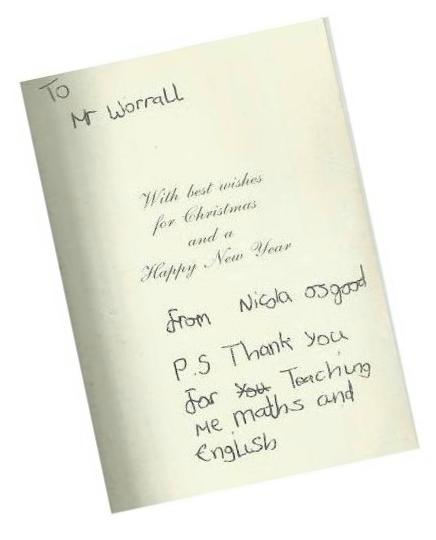 To
Mr Worrall
With best wishes
for Christmas
and a
Happy New Year
from Nicola osgood
P.S Thank You
for You Teaching
Me maths and
English